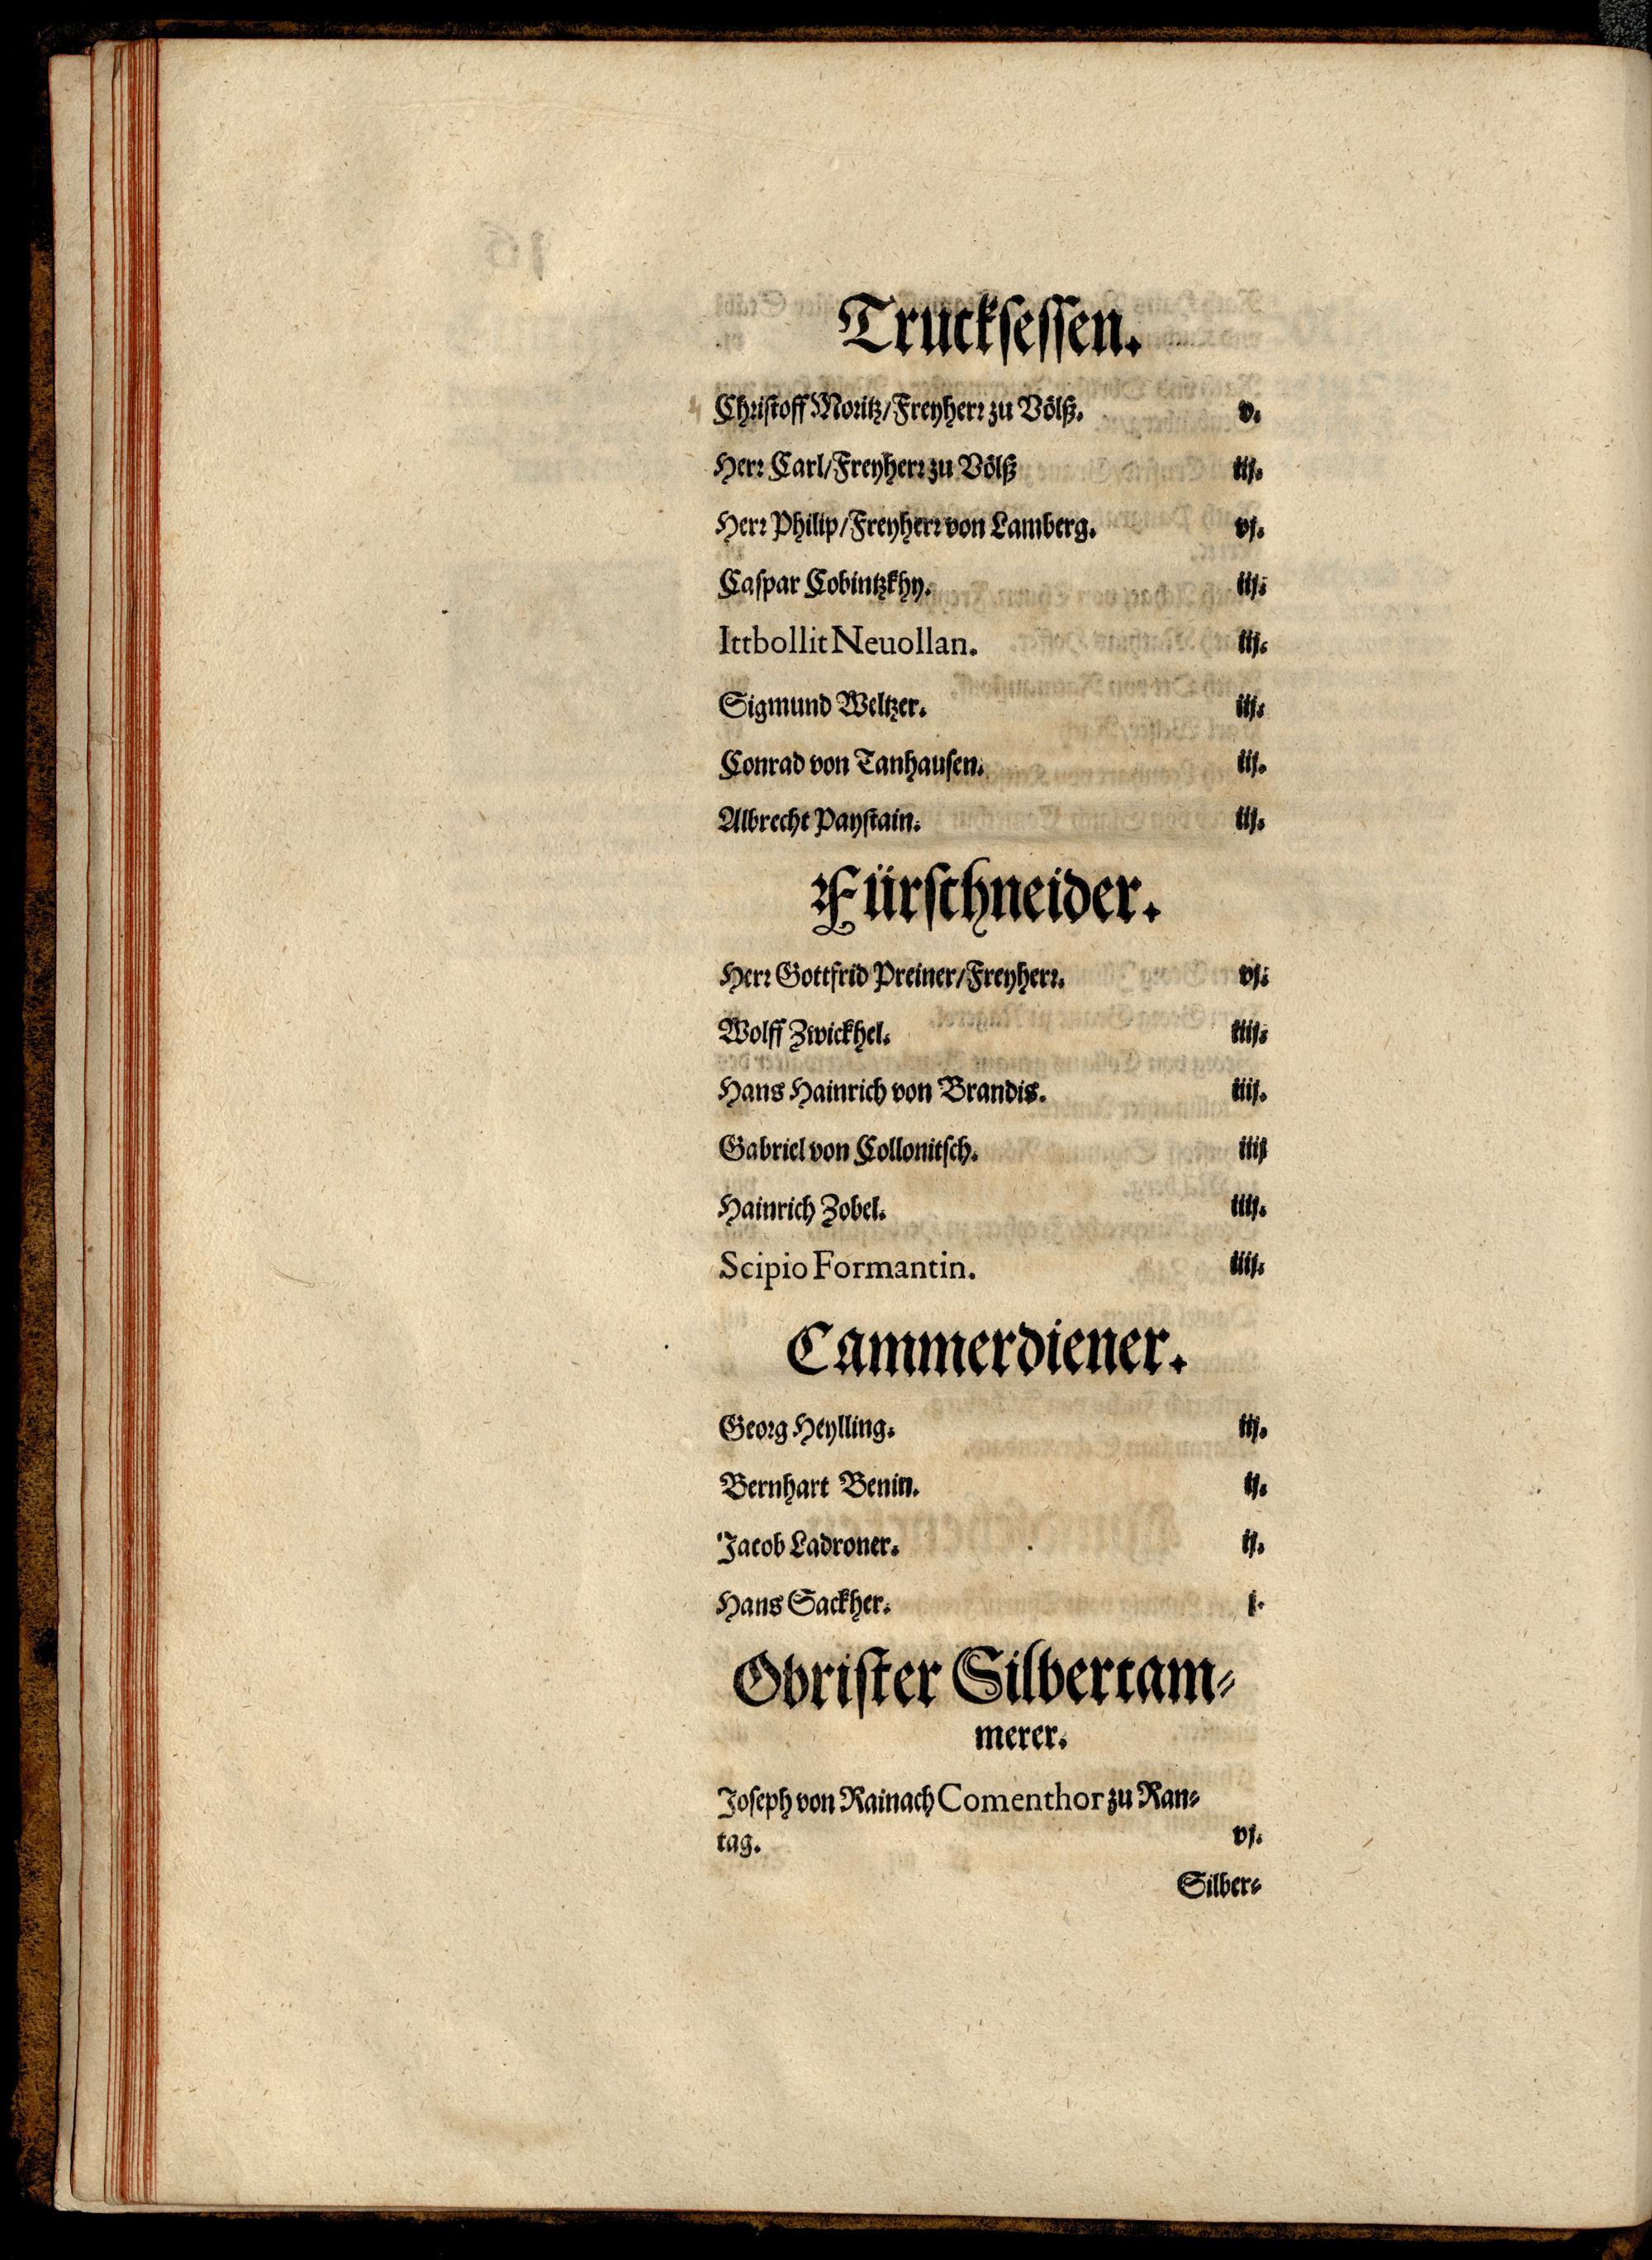 Truckſeſſen.
Chriſtoff Moritz/Freyherr zu Völß. v.
Herr Carl/Freyherr zu Völß iij.
Herr Philip/Freyherr von Lamberg. vj.
Caſpar Cobintzkhy. iij.
Ittbollit Neuollan. iij.
Sigmund Weltzer. iij.
Conrad von Tanhauſen. iij.
Albrecht Payſtain. iij.
Fürſchneider.
Herr Gottfrid Preiner/Freyherr. vj.
Wolff Zwickhel. iiij.
Hans Hainrich von Brandis. iiij.
Gabriel von Collonitſch. iiij
Hainrich Zobel. iiij.
Scipio Formantin. iiij.
Cammerdiener.
Georg Heylling. iij.
Bernhart Benin. ij.
Jacob Ladroner. ij.
Hans Sackher. j.
Obriſter Silbercam⸗
merer.
Joſeph von Rainach Comenthor zu Ran⸗
tag. vj.
Silber⸗